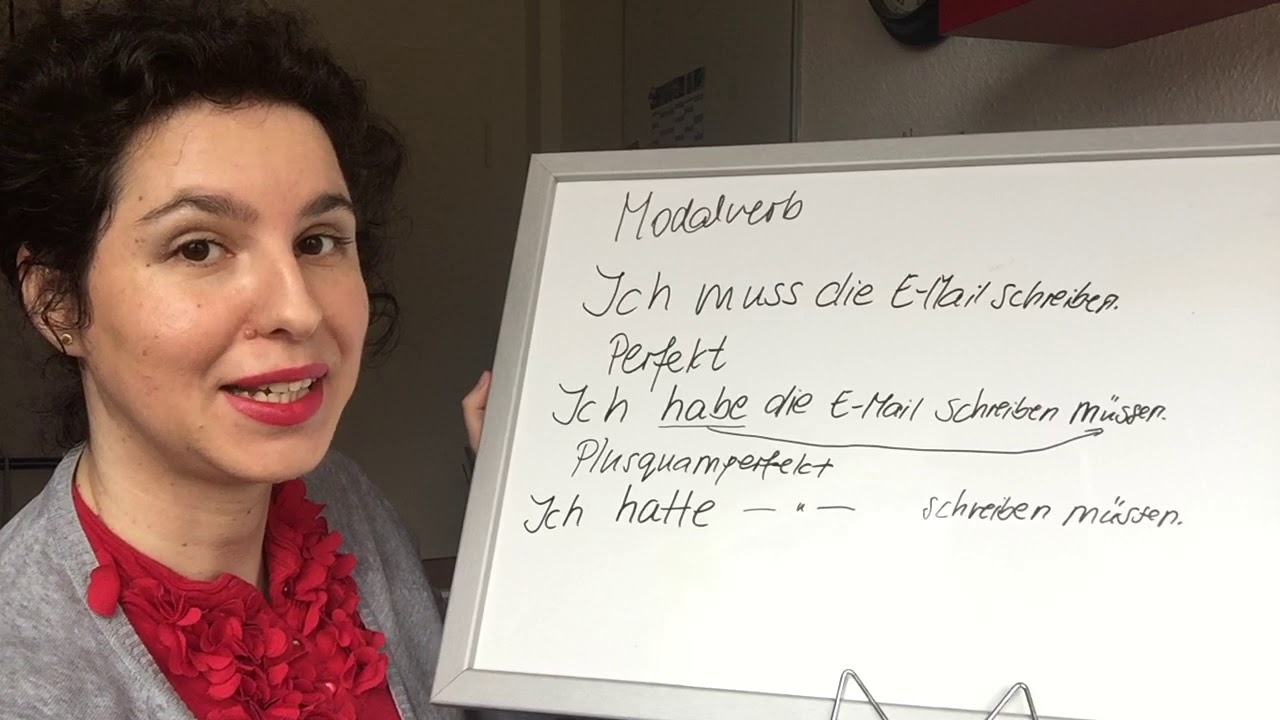 Modalverb
Ich muss die E-Mail schreiben.
Perfekt
Ich habe die E-Mail schreiben müssen.
Plusquamperfekt
Ich hatte — " — schreiben müssen.